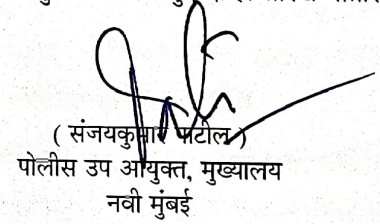 ( संजयकुमार पाटील )
पोलीस उप आयुक्त, मुख्यालय
नवी मुंबई